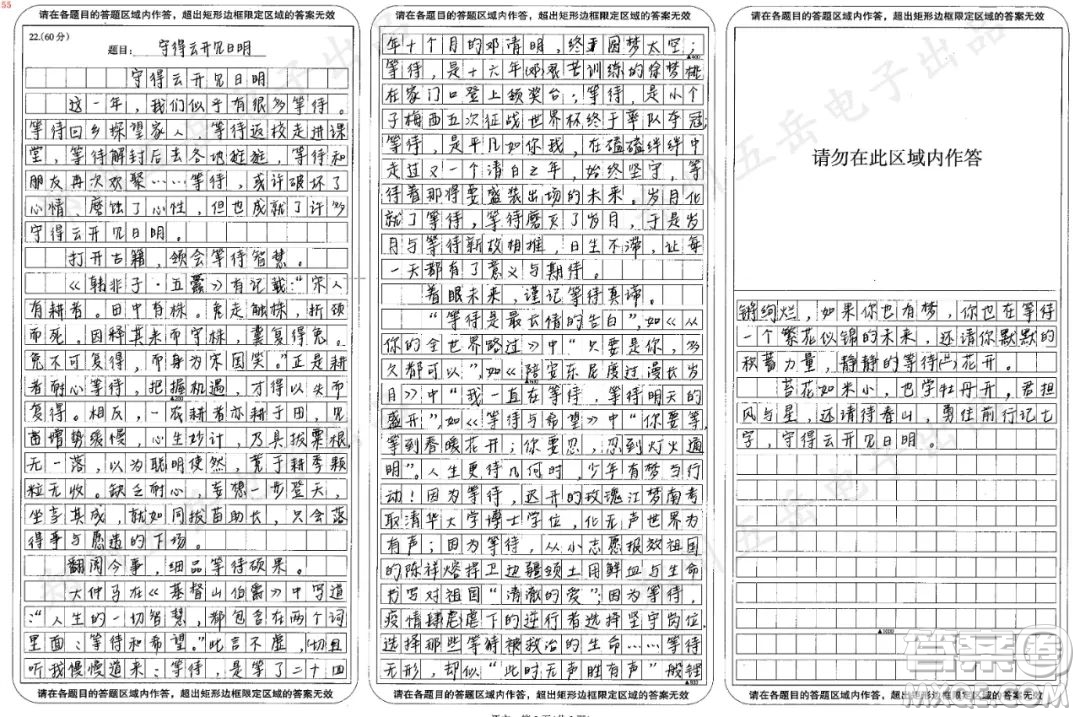 55
请在各题目的答题区域内作答，超出矩形边框限定区域的答案无效
22.(60分)
题目：守得云开见日明
守得云开见日明
这一年，我们似乎有很多等待。
等待回乡探望家人，等待返校走进课
堂，等待解封后去各地旅游，等待和
朋友再次欢聚……等待，或许破坏了
心情、磨蚀了心性，但也成就了许多
守得云开见日明。
打开古籍，领会等待智慧。
《韩非子·五蠹》有记载：“宋人
有耕者。田中有株。兔走触株，折颈
而死。因释其耒而守株，冀复得兔。
兔不可复得，而身为宋国笑。”正是耕
者耐心等待，把握机遇，才得以失而
复得。相反，一农耕者亦耕于田，见
苗增势缓慢，心生妙计，乃具拔粟根
无一落，以为聪明使然，荒于耕季颗
粒无收。缺乏耐心，妄想一步登天，
坐享其成，就如同拔苗助长，只会落
得事与愿违的下场。
翻阅今事，细品等待硕果。
大仲马在《基督山伯爵》中写道
：“人生的一切智慧，都包含在两个词
里面：等待和希望。”此言不虚，切且
听我慢慢道来：等待，是等了二十四
请在各题目的答题区域内作答，超出矩形边框限定区域的答案无效
请在各题目的答题区域内作答，超出矩形边框限定区域的答案无效
年十个月的邓清明，终于圆梦太空；
等待，是十六年艰苦训练的徐梦桃
在家门口登上领奖台；等待，是小个
子梅西五次征战世界杯终于率队夺冠；
等待，是平凡如你我，在磕磕绊绊中
走过又一个清日之年，始终坚守，等
待着那将要盛装出场的未来。岁月化
就了等待，等待磨灭了岁月，于是岁
月与等待新故相推，日生不滞，让每
一天都有了意义与期待。
着眼未来，谨记等待真谛。
“等待是最长情的告白”，如《从
你的全世界路过》中“只要是你，多
久都可以”，如《陪安东尼度过漫长岁
月》中“我一直在等待，等待明天的
盛开”，如《等待与希望》中“你要等，
等到春暖花开；你要忍，忍到灯火通
明”。人生更待几何时，少年有梦当行
动！因为等待，迟开的玫瑰江梦南考
取清华大学博士学位，化无声世界为
有声；因为等待，从小志愿报效祖国
的陈祥榕捍卫边疆领土用鲜血与生命
书写对祖国“清澈的爱”；因为等待，
疫情肆虐下的逆行者选择坚守岗位，
选择那些等待被救治的生命……等待
无形，却似“此时无声胜有声”般铿
请在各题目的答题区域内作答，超出矩形边框限定区域的答案无效
请在各题目的答题区域内作答，超出矩形边框限定区域的答案无效
请勿在此区域内作答
锵绚烂，如果你也有梦，你也在等待
一个繁花似锦的未来，还请你默默的
积蓄力量，静静的等待花开。
苔花如米小，也学牡丹开，君担
风与星，还请待春山，勇往前行记七
字，守得云开见日明。
请在各题目的答题区域内作答，超出矩形边框限定区域的答案无效